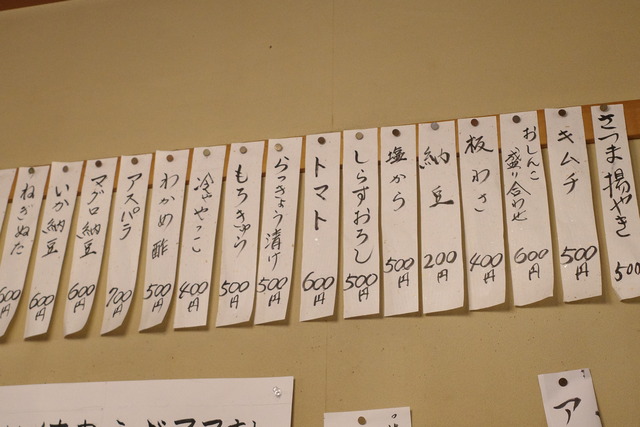 さつま揚やき
500
キムチ
500円
おしんこ
盛り合わせ
600円
板わさ
400円
納豆
200円
塩から
500円
しらすおろし
500円
トマト
600円
らっきょう漬け
500円
もろきゅう
500円
冷ややっこ
400円
わかめ酢
500円
アスパラ
700円
マグロ納豆
600円
いか納豆
600円
ねぎぬた
600円
ア